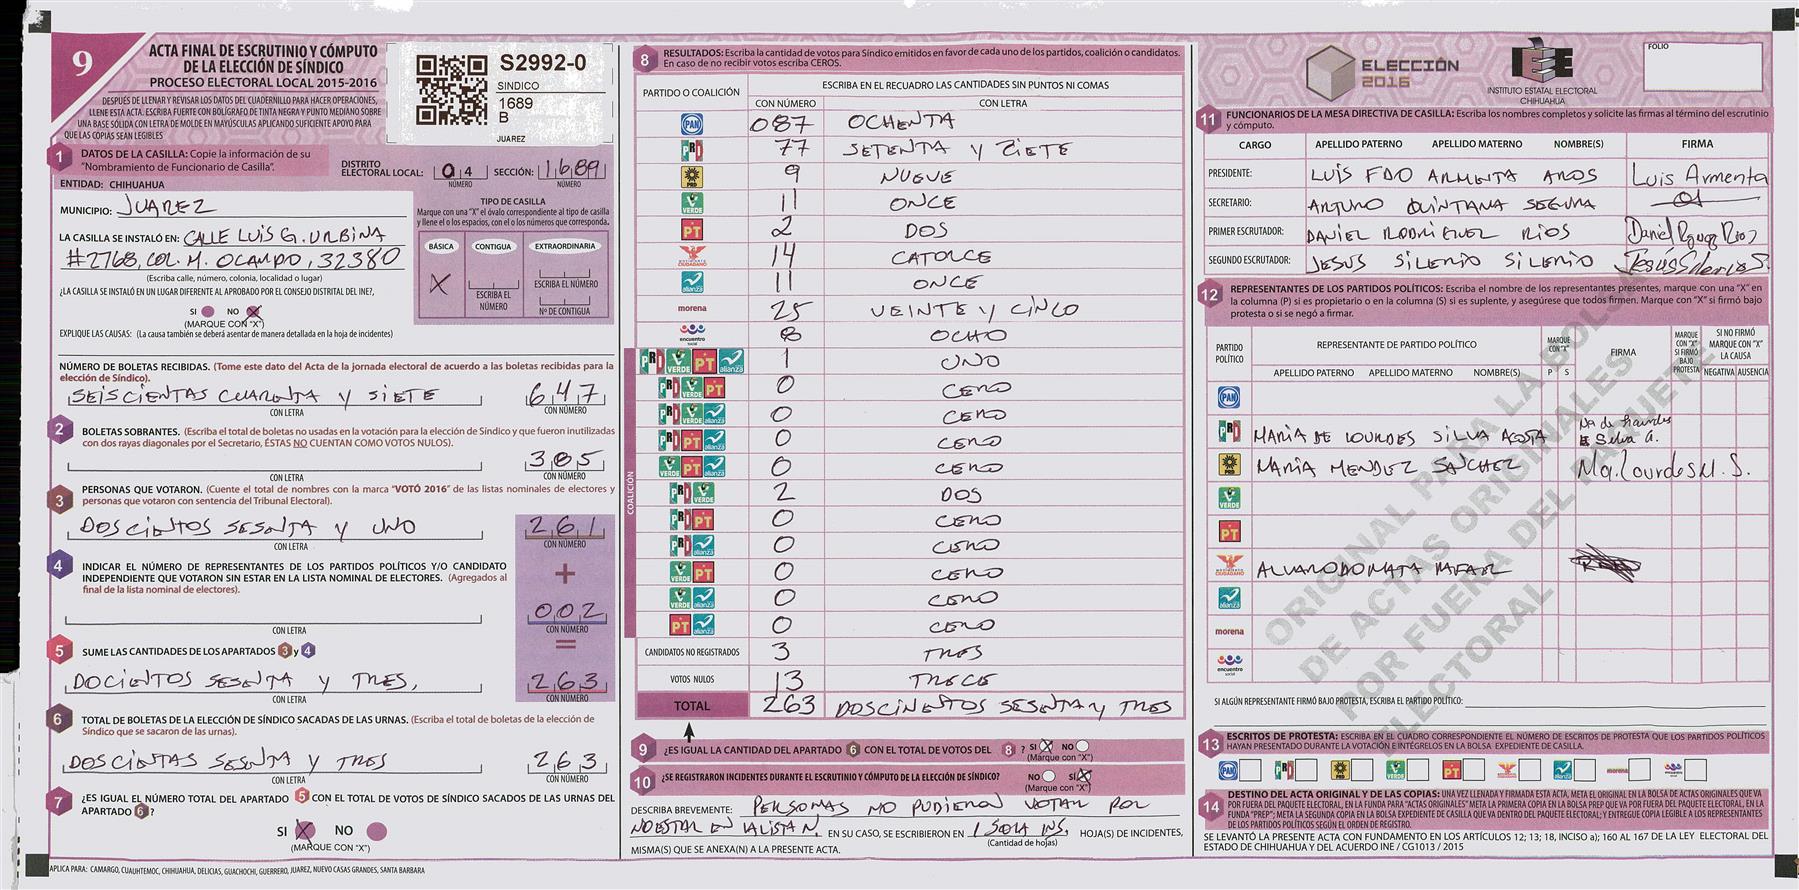 9
ACTA FINAL DE ESCRUTINIO Y CÓMPUTO
DE LA ELECCIÓN DE SÍNDICO
PROCESO ELECTORAL LOCAL 2015-2016
DESPUÉS DE LLENAR Y REVISAR LOS DATOS DEL CUADERNILLO PARA HACER OPERACIONES,
LLENE ESTA ACTA. ESCRIBA FUERTE CON BOLÍGRAFO DE TINTA NEGRA Y PUNTO MEDIANO SOBRE
UNA BASE SÓLIDA CON LETRA DE MOLDE EN MAYÚSCULAS APLICANDO SUFICIENTE APOYO PARA
QUE LAS COPIAS SEAN LEGIBLES
S2992-0
SINDICO
1689
B
JUAREZ
1 DATOS DE LA CASILLA: Copie la información de su
"Nombramiento de Funcionario de Casilla".
DISTRITO
ELECTORAL LOCAL: 04 SECCIÓN: 1689
NÚMERO NÚMERO
ENTIDAD: CHIHUAHUA
MUNICIPIO: JUAREZ
LA CASILLA SE INSTALÓ EN: CALLE LUIS G. URBINA
#2768, COL. M. OCAMPO, 32380
(Escriba calle, número, colonia, localidad o lugar)
¿LA CASILLA SE INSTALÓ EN UN LUGAR DIFERENTE AL APROBADO POR EL CONSEJO DISTRITAL DEL INE?,
SI NO X
(MARQUE CON "X")
EXPLIQUE LAS CAUSAS: (La causa también se deberá asentar de manera detallada en la hoja de incidentes)
TIPO DE CASILLA
Marque con una "X" el óvalo correspondiente al tipo de casilla
y llene el o los espacios, con el o los números que corresponda.
BÁSICA CONTIGUA EXTRAORDINARIA
X
ESCRIBA EL NÚMERO
ESCRIBA EL NÚMERO
Nº DE CONTIGUA
NÚMERO DE BOLETAS RECIBIDAS. (Tome este dato del Acta de la jornada electoral de acuerdo a las boletas recibidas para la
elección de Síndico).
SEISCIENTAS CUARENTA Y SIETE 647
CON LETRA CON NÚMERO
2 BOLETAS SOBRANTES. (Escriba el total de boletas no usadas en la votación para la elección de Síndico y que fueron inutilizadas
con dos rayas diagonales por el Secretario, ÉSTAS NO CUENTAN COMO VOTOS NULOS).
385
CON LETRA CON NÚMERO
3 PERSONAS QUE VOTARON. (Cuente el total de nombres con la marca "VOTÓ 2016" de las listas nominales de electores y
personas que votaron con sentencia del Tribunal Electoral).
DOSCIENTOS SESENTA Y UNO 261
CON LETRA CON NÚMERO
4 INDICAR EL NÚMERO DE REPRESENTANTES DE LOS PARTIDOS POLÍTICOS Y/O CANDIDATO
INDEPENDIENTE QUE VOTARON SIN ESTAR EN LA LISTA NOMINAL DE ELECTORES. (Agregados al
final de la lista nominal de electores).
+
002
CON LETRA CON NÚMERO
=
5 SUME LAS CANTIDADES DE LOS APARTADOS 3 y 4
DOCIENTOS SESENTA Y TRES, 263
CON LETRA CON NÚMERO
6 TOTAL DE BOLETAS DE LA ELECCIÓN DE SÍNDICO SACADAS DE LAS URNAS. (Escriba el total de boletas de la elección de
Síndico que se sacaron de las urnas).
DOSCIENTAS SESENTA Y TRES 263
CON LETRA CON NÚMERO
7 ¿ES IGUAL EL NÚMERO TOTAL DEL APARTADO 5 CON EL TOTAL DE VOTOS DE SÍNDICO SACADOS DE LAS URNAS DEL
APARTADO 6?
SI X NO
(MARQUE CON "X")
APLICA PARA: CAMARGO, CUAUHTEMOC, CHIHUAHUA, DELICIAS, GUACHOCHI, GUERRERO, JUAREZ, NUEVO CASAS GRANDES, SANTA BARBARA
8 RESULTADOS: Escriba la cantidad de votos para Síndico emitidos en favor de cada uno de los partidos, coalición o candidatos.
En caso de no recibir votos escriba CEROS.
PARTIDO O COALICIÓN ESCRIBA EN EL RECUADRO LAS CANTIDADES SIN PUNTOS NI COMAS
CON NÚMERO CON LETRA
PAN 087 OCHENTA
PRI 77 SETENTA Y ZIETE
PRD 9 NUEVE
VERDE 11 ONCE
PT 2 DOS
MOVIMIENTO CIUDADANO 14 CATOLCE
alianza 11 ONCE
morena 25 VEINTE Y CINCO
encuentro social 8 OCHO
COALICIÓN
PRI VERDE PT alianza 1 UNO
PRI VERDE PT 0 CERO
PRI VERDE alianza 0 CERO
PRI PT alianza 0 CERO
VERDE PT alianza 0 CERO
PRI VERDE 2 DOS
PRI PT 0 CERO
PRI alianza 0 CERO
VERDE PT 0 CERO
VERDE alianza 0 CERO
PT alianza 0 CERO
CANDIDATOS NO REGISTRADOS 3 TRES
VOTOS NULOS 13 TRECE
TOTAL 263 DOSCINENTOS SESENTA Y TRES
9 ¿ES IGUAL LA CANTIDAD DEL APARTADO 6 CON EL TOTAL DE VOTOS DEL 8 ? SI X NO
(Marque con "X")
10 ¿SE REGISTRARON INCIDENTES DURANTE EL ESCRUTINIO Y CÓMPUTO DE LA ELECCIÓN DE SÍNDICO? NO SÍ X
(Marque con "X")
DESCRIBA BREVEMENTE: PERSONAS NO PUDIERON VOTAR POR
NO ESTAR EN LA LISTA N. EN SU CASO, SE ESCRIBIERON EN 1 SOLA INS. HOJA(S) DE INCIDENTES,
(Cantidad de hojas)
MISMA(S) QUE SE ANEXA(N) A LA PRESENTE ACTA.
ELECCIÓN
2016
IEE
INSTITUTO ESTATAL ELECTORAL
CHIHUAHUA
FOLIO
11 FUNCIONARIOS DE LA MESA DIRECTIVA DE CASILLA: Escriba los nombres completos y solicite las firmas al término del escrutinio
y cómputo.
CARGO APELLIDO PATERNO APELLIDO MATERNO NOMBRE(S) FIRMA
PRESIDENTE: LUIS FDO ARMENTA AROS Luis Armenta
SECRETARIO: ARTURO QUINTANA SEGURA
PRIMER ESCRUTADOR: DANIEL RODRIGUEZ RIOS Daniel Rguez Rios
SEGUNDO ESCRUTADOR: JESUS SILERIO SILERIO Jesus Silerio S.
12 REPRESENTANTES DE LOS PARTIDOS POLÍTICOS: Escriba el nombre de los representantes presentes, marque con una "X" en
la columna (P) si es propietario o en la columna (S) si es suplente, y asegúrese que todos firmen. Marque con "X" si firmó bajo
protesta o si se negó a firmar.
PARTIDO POLÍTICO REPRESENTANTE DE PARTIDO POLÍTICO MARQUE CON "X" FIRMA MARQUE CON "X" SI FIRMÓ BAJO PROTESTA SI NO FIRMÓ MARQUE CON "X" LA CAUSA
APELLIDO PATERNO APELLIDO MATERNO NOMBRE(S) P S NEGATIVA AUSENCIA
PAN
PRI MARIA DE LOURDES SILVA ACOSTA Ma de Lourdes Silva A.
PRD MARIA MENDEZ SANCHEZ Ma. Lourdes M. S.
VERDE
PT
MOVIMIENTO CIUDADANO ALVARADO MATA
alianza
morena
encuentro social
ORIGINAL PARA LA BOLSA
DE ACTAS ORIGINALES
POR FUERA DEL PAQUETE
ELECTORAL
SI ALGÚN REPRESENTANTE FIRMÓ BAJO PROTESTA, ESCRIBA EL PARTIDO POLÍTICO:
13 ESCRITOS DE PROTESTA: ESCRIBA EN EL CUADRO CORRESPONDIENTE EL NÚMERO DE ESCRITOS DE PROTESTA QUE LOS PARTIDOS POLÍTICOS
HAYAN PRESENTADO DURANTE LA VOTACIÓN E INTÉGRELOS EN LA BOLSA EXPEDIENTE DE CASILLA.
PAN PRI PRD VERDE PT alianza morena
14 DESTINO DEL ACTA ORIGINAL Y DE LAS COPIAS: UNA VEZ LLENADA Y FIRMADA ESTA ACTA, META EL ORIGINAL EN LA BOLSA DE ACTAS ORIGINALES QUE VA
POR FUERA DEL PAQUETE ELECTORAL, EN LA FUNDA PARA "ACTAS ORIGINALES" META LA PRIMERA COPIA EN LA BOLSA PREP QUE VA POR FUERA DEL PAQUETE ELECTORAL, EN LA
FUNDA "PREP"; META LA SEGUNDA COPIA EN LA BOLSA EXPEDIENTE DE CASILLA QUE VA DENTRO DEL PAQUETE ELECTORAL; Y ENTREGUE COPIA LEGIBLE A LOS REPRESENTANTES
DE LOS PARTIDOS POLÍTICOS SEGÚN EL ORDEN DE REGISTRO.
SE LEVANTÓ LA PRESENTE ACTA CON FUNDAMENTO EN LOS ARTÍCULOS 12; 13; 18, INCISO a); 160 AL 167 DE LA LEY ELECTORAL DEL
ESTADO DE CHIHUAHUA Y DEL ACUERDO INE / CG1013 / 2015